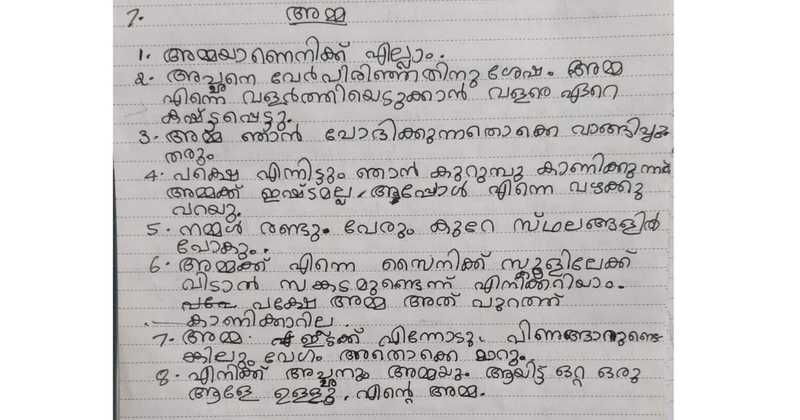 7. അമ്മ
1. അമ്മയാണെനിക്ക് എല്ലാം.
2. അച്ഛനെ വേർപിരിഞ്ഞതിനു ശേഷം അമ്മ
എന്നെ വളർത്തിയെടുക്കാൻ വളരെ ഏറെ
കഷ്ട്ടപ്പെട്ടു.
3. അമ്മ ഞാൻ ചോദിക്കുന്നതൊക്കെ വാങ്ങിച്ചു
തരും
4. പക്ഷെ എന്നിട്ടും ഞാൻ കുറുമ്പു കാണിക്കുന്നത്
അമ്മക്ക് ഇഷ്ടമല്ല, അപ്പോൾ എന്നെ വഴക്കു
പറയു.
5. നമ്മൾ രണ്ടും പേരും കുറേ സ്ഥലങ്ങളിൽ
പോകും.
6. അമ്മക്ക് എന്നെ സൈനിക്ക് സ്കൂളിലേക്ക്
വിടാൻ സങ്കടമുണ്ടെന്ന് എനിക്കറിയാം.
പക്ഷേ അമ്മ അത് പുറത്ത്
കാണിക്കാറില്ല.
7. അമ്മ ഇടക്ക് എന്നോടു പിണങ്ങാറുണ്ടെ-
ങ്കിലും വേഗം അതൊക്കെ മാറും.
8. എനിക്ക് അച്ഛനും അമ്മയും ആയിട്ട് ഒറ്റ ഒരു
ആളേ ഉള്ളു, എന്റെ അമ്മ.